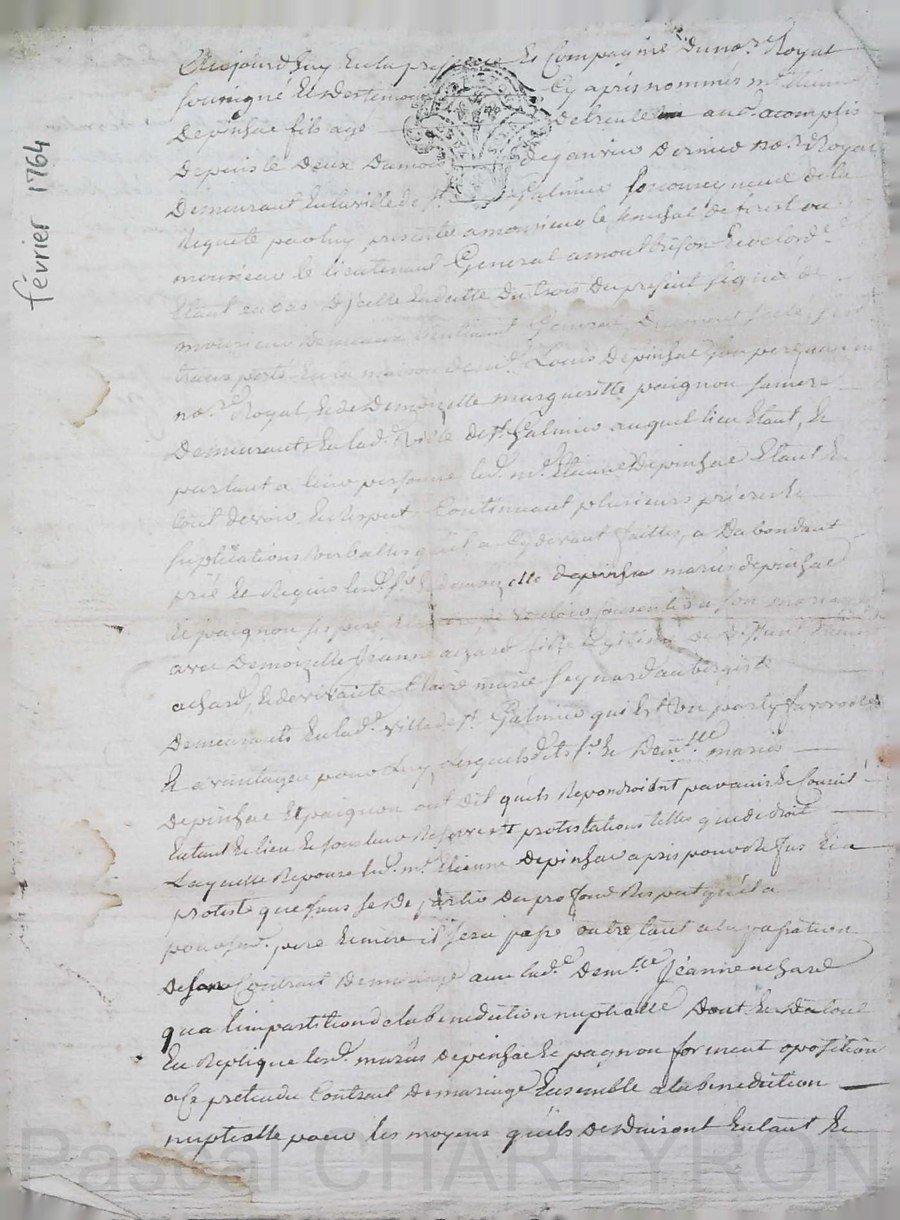 février 1764
Aujourd'huy En la pre Et Compagnie Du no.re Royal
soussigné Et Des temoins Cy apres nommés m.e Etienne
Depinhac fils agé De trente ans acomplis
Depuis le Deux Du mois de janvier Dernier no.re Royal
Demeurant En la ville de s.t Galmier
Requete par luy presentée a monsieur le senechal de forest ou
monsieur le lieutenant General a montbrison Et l'ord.e
Etant au bas D'jcelle En datte Du trois Du present signée de
monsieur lieutenant General
transporté En la maison de m.e Louis Depinhac son pere
no.re Royal Et de Demoizelle margueritte paignon sa mere
Demeurants En lad. ville de s.t Galmier auquel lieu Etant, Et
parlant a leurs personnes led. m.e Etienne Depinhac Etant En
tout devoir Et Respect, Continuant plusieurs prieres Et
suplications verballes qu'il a Cy devant faittes, a Dabondant
prié Et Requis led. s.r Et demoizelle depinhac mariés depinhac
Et paignon ses pere Et mere de vouloir Consentir a son mariage
avec Demoizelle Jeanne achard fille legitime de
achard, Et de vivante Claire marie seynard aubergiste
Demeurants En lad. ville de s.t Galmier qui Est un party favorable
Et avantageux pour luy, lesquels dits s.r Et Dem.lle mariés
Depinhac Et paignon ont dit qu'ils Repondroient par avis de Conseil
En tant Et lieu Et sous leurs Reserves Et protestations telles que de droit
Laquelle Reponse led. m.e Etienne Depinhac a pris pour Refus Et a
protesté que sans se De partir Du profond Respect qu'il a
pour sesd. pere Et mere il sera passé outre tant a la passation
De son Contrat De mariage avec lad. Dem.lle Jeanne achard
qu'a l'impartition de la benediction nuptialle Dont Et Du tout
En Replique lesd. mariés Depinhac Et pagnon forment oposition
a Ce pretendu Contrat De mariage Ensemble a la benediction
nuptialle pour les moyens qu'ils Deduiront En tant Et
Pascal CHAREYRON